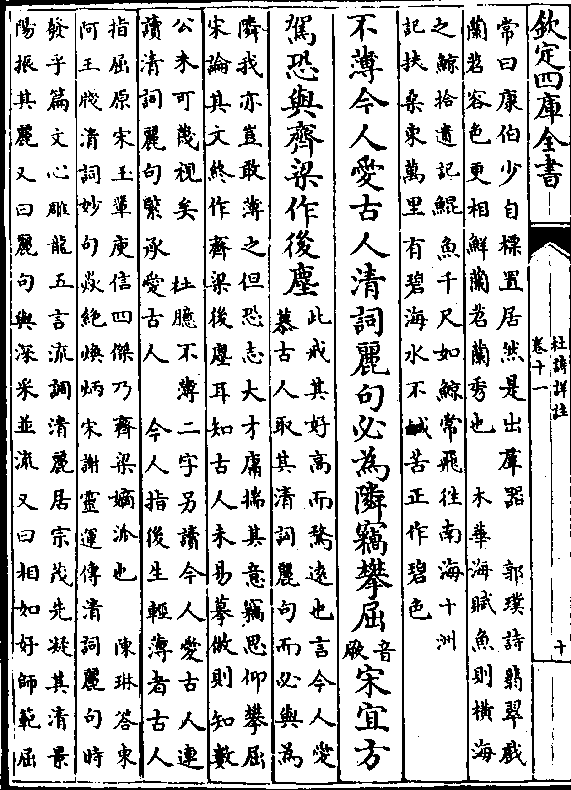 欽定四庫全書
杜詩詳註
卷十一
十
常曰康伯少自標置居然是出羣器　郭璞詩翡翠戲
蘭苕容色更相鮮蘭苕蘭秀也　木華海賦魚則橫海
之鯨拾遺記鯤魚千尺如鯨常飛往南海十洲
記扶桑東萬里有碧海水不鹹苦正作碧色
不薄今人愛古人清詞麗句必為隣竊攀屈音厥宋宜方
駕恐與齊梁作後塵
此戒其好高而騖遠也言今人愛
慕古人取其清詞麗句而必與為
隣我亦豈敢薄之但恐志大才庸揣其意竊思仰攀屈
宋論其文終作齊梁後塵耳知古人未易摹倣則知數
公未可蔑視矣　杜臆不薄二字另讀今人愛古人連
讀清詞麗句緊承愛古人　今人指後生輕薄者古人
指屈原宋玉輩庾信四傑乃齊梁嫡派也　陳琳答東
阿王牋清詞妙句焱絕煥炳宋謝靈運傳清詞麗句時
發乎篇文心雕龍五言流調清麗居宗茂先凝其清景
陽振其麗又曰麗句與深采並流又曰相如好師範屈